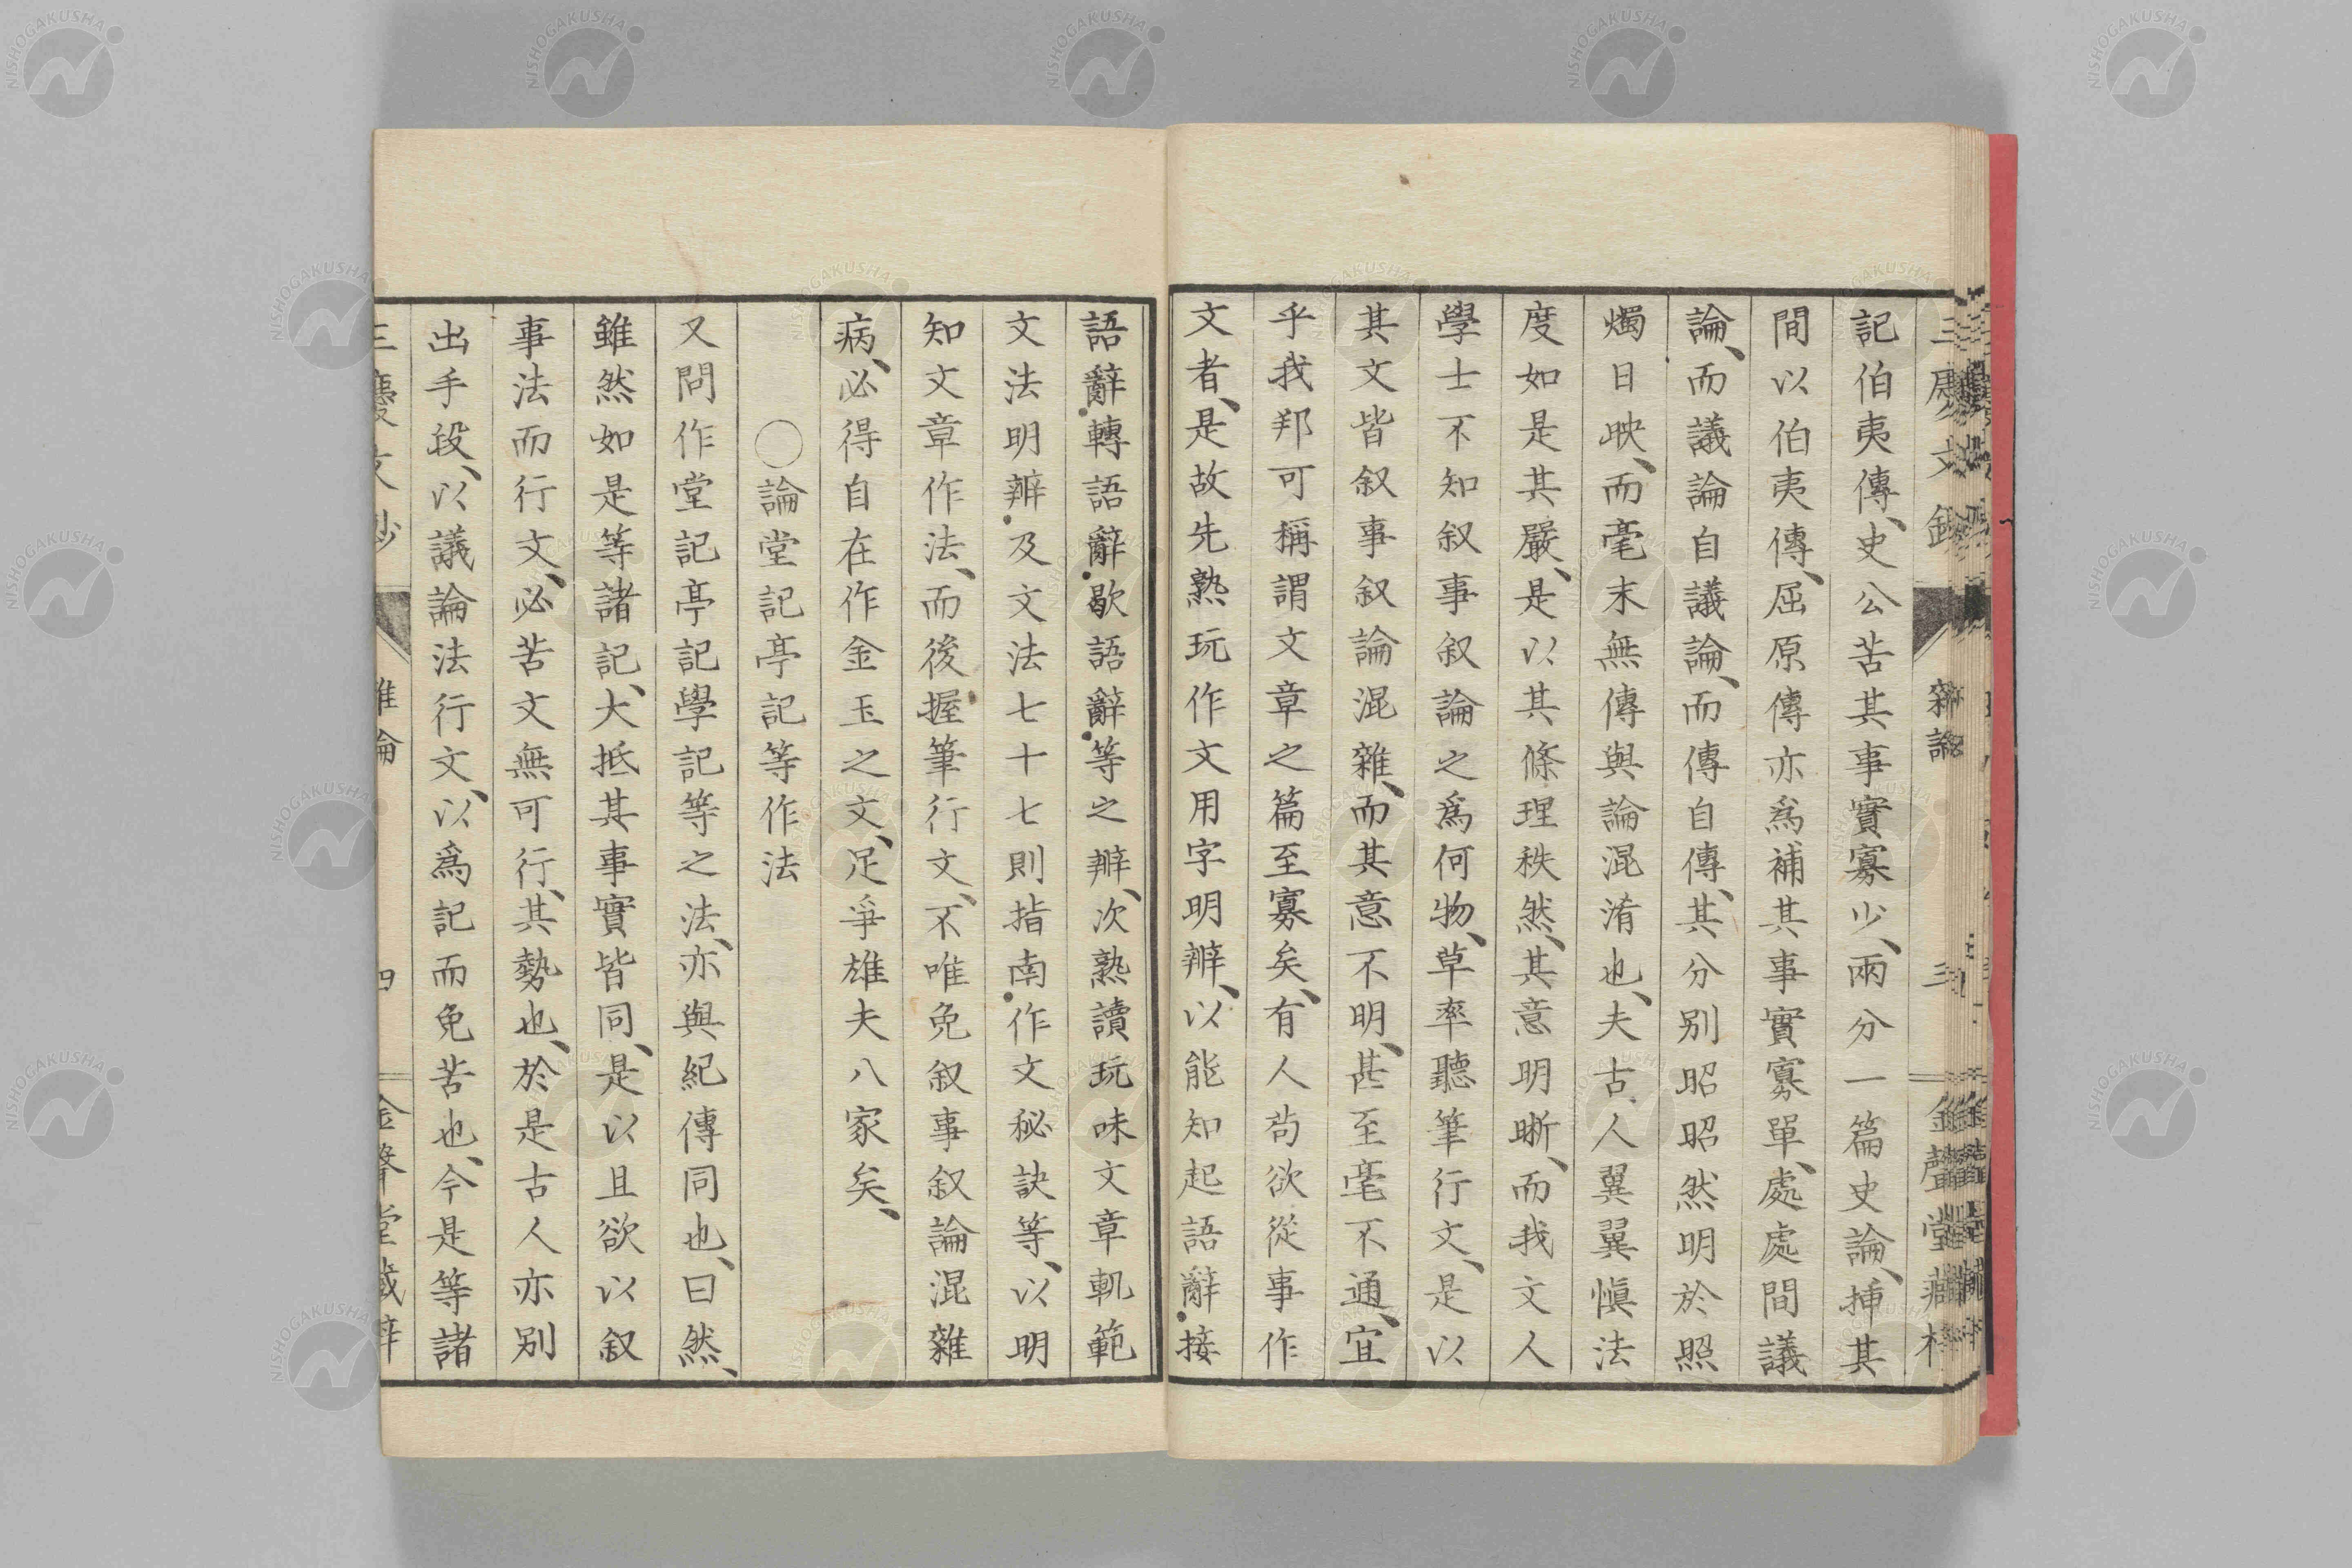 記伯夷傳、史公苦其事實寡少、兩分一篇史論、挿其
間以伯夷傳、屈原傳亦爲補其事實寡單、處處間議
論、而議論自議論、而傳自傳、其分別昭昭然明於照
燭日映、而毫末無傳與論混淆也、夫古人翼翼愼法
度如是其嚴、是以其條理秩然、其意明晣、而我文人
學士不知叙事叙論之爲何物、草率聽筆行文、是以
其文皆叙事叙論混雜、而其意不明、甚至毫不通、宜
乎我邦可稱謂文章之篇至寡矣、有人苟欲從事作
文者、是故先熟玩作文用字明辨、以能知起語辭・接
語辭・轉語辭・歇語辭・等之辨、次熟讀玩味文章軌範
文法明辨・及文法七十七則指南・作文秘訣等、以明
知文章作法、而後握筆行文、不唯免叙事叙論混雜
病、必得自在作金玉之文、足爭雄夫八家矣、
○論堂記亭記等作法
又問作堂記亭記學記等之法、亦與紀傳同也、曰然、
雖然如是等諸記、大抵其事實皆同、是以且欲以叙
事法而行文、必苦文無可行、其勢也、於是古人亦別
出手段、以議論法行文、以爲記而免苦也、今是等諸
雜論
三
金聲堂藏梓
NISHOGAKUSHA